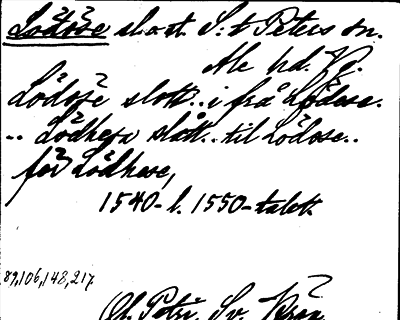 Lödöse slott. S:t Peters sn.
Ale hd. Vg.
Lödöse slott.. i frå Lödose.
.. Lödhesa slått.. til Lödose..
för Lödhese,
1540- l. 1550-talet.
89,106,148,217
Ol. Petri, Sv. Krön.